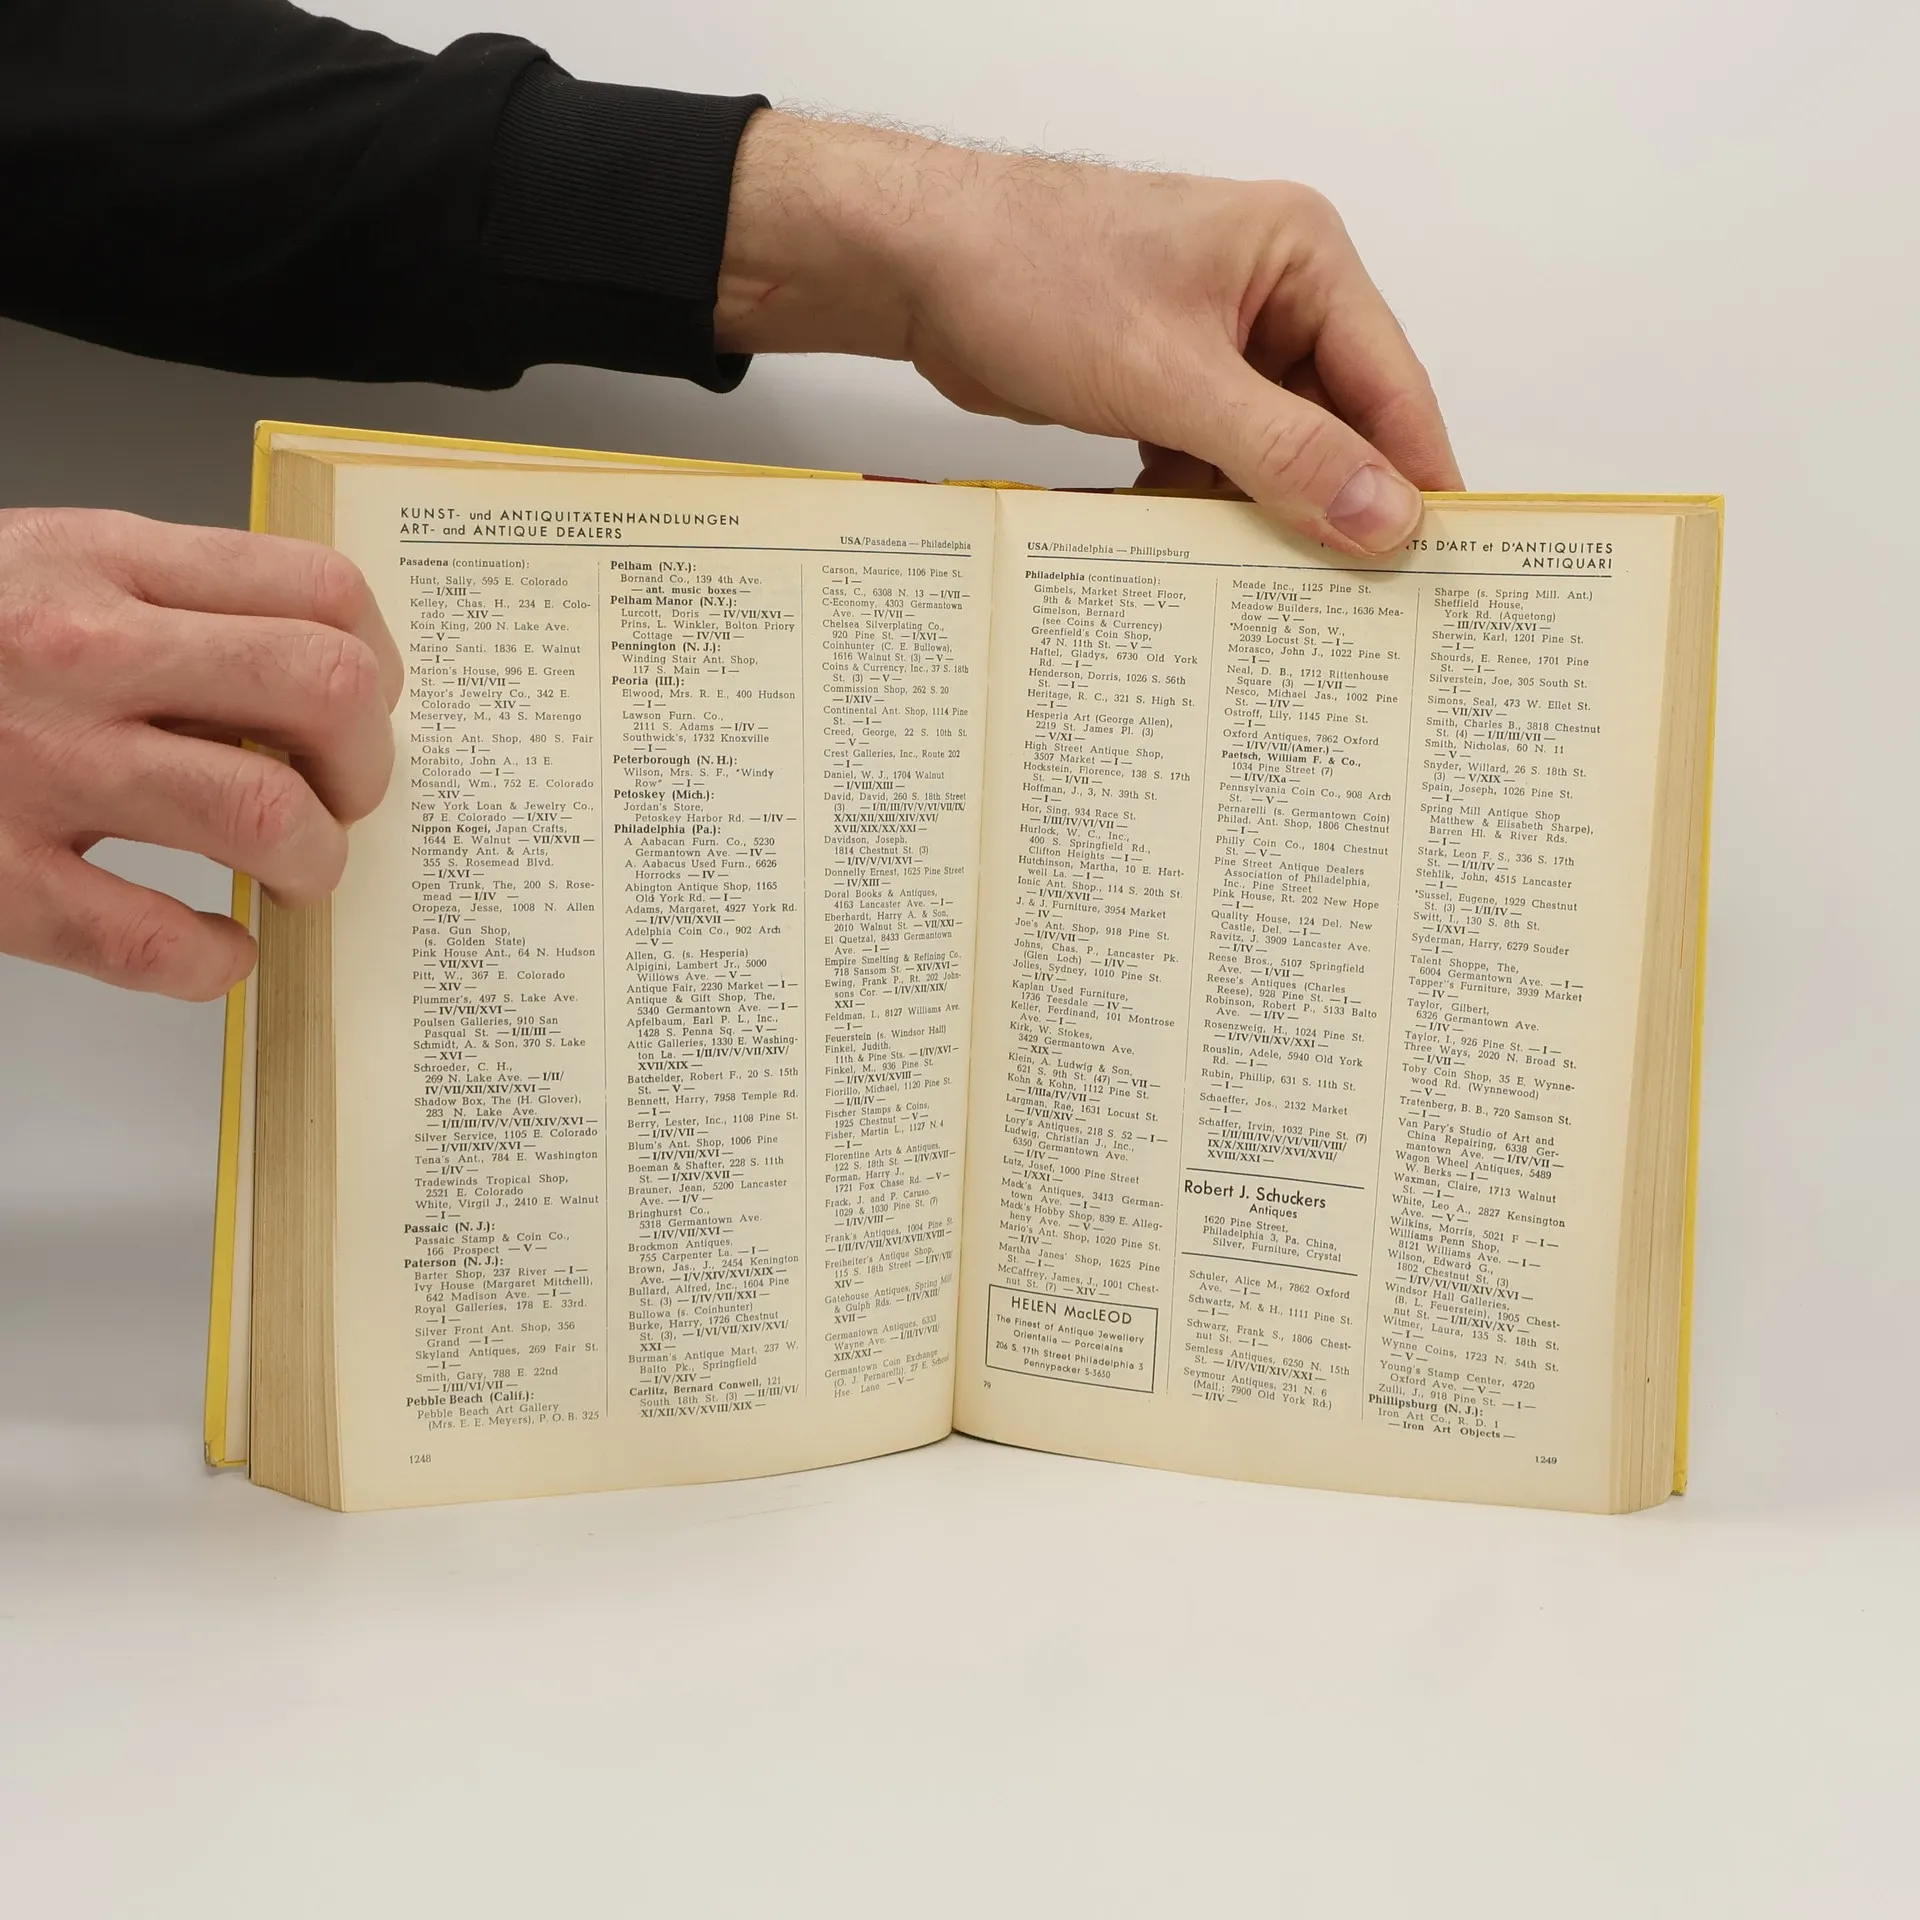 KUNST- und ANTIQUITÄTENHANDLUNGEN
ART- and ANTIQUE DEALERS
USA/Pasadena — Philadelphia
Pasadena (continuation):
Hunt, Sally, 595 E. Colorado
— I/XIII —
Kelley, Chas. H., 234 E. Colo-
rado — XIV —
Koin King, 200 N. Lake Ave.
— V —
Marino Santi. 1836 E. Walnut
— I —
Marion's House, 996 E. Green
St. — II/VI/VII —
Mayor's Jewelry Co., 342 E.
Colorado — XIV —
Meservey, M., 43 S. Marengo
— I —
Mission Ant. Shop, 480 S. Fair
Oaks — I —
Morabito, John A., 13 E.
Colorado — I —
Mosandl, Wm., 752 E. Colorado
— XIV —
New York Loan & Jewelry Co.,
87 E. Colorado — I/XIV —
Nippon Kogei, Japan Crafts,
1644 E. Walnut — VII/XVII —
Normandy Ant. & Arts,
355 S. Rosemead Blvd.
— I/XVI —
Open Trunk, The, 200 S. Rose-
mead — I/IV —
Oropeza, Jesse, 1008 N. Allen
— I/IV —
Pasa. Gun Shop,
(s. Golden State)
Pink House Ant., 64 N. Hudson
— VII/XVI —
Pitt, W., 367 E. Colorado
— XIV —
Plummer's, 497 S. Lake Ave.
— IV/VII/XVI —
Poulsen Galleries, 910 San
Pasqual St. — I/II/III —
Schmidt, A. & Son, 370 S. Lake
— XVI —
Schroeder, C. H.,
269 N. Lake Ave. — I/II/
IV/VII/XII/XIV/XVI —
Shadow Box, The (H. Glover),
283 N. Lake Ave.
— I/II/III/IV/V/VII/XIV/XVI —
Silver Service, 1105 E. Colorado
— I/VII/XIV/XVI —
Tena's Ant., 784 E. Washington
— I/IV —
Tradewinds Tropical Shop,
2521 E. Colorado
White, Virgil J., 2410 E. Walnut
— I —
Passaic (N. J.):
Passaic Stamp & Coin Co.,
166 Prospect — V —
Paterson (N. J.):
Barter Shop, 237 River — I —
Ivy House (Margaret Mitchell),
642 Madison Ave. — I —
Royal Galleries, 178 E. 33rd.
— I —
Silver Front Ant. Shop, 356
Grand — I —
Skyland Antiques, 269 Fair St.
— I —
Smith, Gary, 788 E. 22nd
— I/III/VI/VII —
Pebble Beach (Calif.):
Pebble Beach Art Gallery
(Mrs. E. E. Meyers), P. O. B. 325
Pelham (N.Y.):
Bornand Co., 139 4th Ave.
— ant. music boxes —
Pelham Manor (N.Y.):
Lurcott, Doris — IV/VII/XVI —
Prins, L. Winkler, Bolton Priory
Cottage — IV/VII —
Pennington (N. J.):
Winding Stair Ant. Shop,
117 S. Main — I —
Peoria (Ill.):
Elwood, Mrs. R. E., 400 Hudson
— I —
Lawson Furn. Co.,
2111 S. Adams — I/IV —
Southwick's, 1732 Knoxville
— I —
Peterborough (N. H.):
Wilson, Mrs. S. F., "Windy
Row" — I —
Petoskey (Mich.):
Jordan's Store,
Petoskey Harbor Rd. — I/IV —
Philadelphia (Pa.):
A Aabacan Furn. Co., 5230
Germantown Ave. — IV —
A. Aabacus Used Furn., 6626
Horrocks — IV —
Abington Antique Shop, 1165
Old York Rd. — I —
Adams, Margaret, 4927 York Rd.
— I/IV/VII/XII/VII —
Adelphia Coin Co., 902 Arch
— V —
Allen, G. (s. Hesperia)
Alpigini, Lambert Jr., 5000
Willows Ave. — V —
Antique Fair, 2230 Market — I —
Antique & Gift Shop, The,
5340 Germantown Ave. — I —
Apfelbaum, Earl P. L., Inc.,
1428 S. Penna Sq. — V —
Attic Galleries, 1330 E. Washing-
ton La. — I/II/IV/V/VII/XIV/
XVII/XIX —
Batchelder, Robert F., 20 S. 15th
St. — V —
Bennett, Harry, 7958 Temple Rd.
— I —
Berry, Lester, Inc., 1108 Pine St.
— I/IV/VII —
Blum's Ant. Shop, 1006 Pine
— I/IV/VII/XVI —
Boeman & Shafter, 228 S. 11th
St. — I/XIV/XVII —
Brauner, Jean, 5200 Lancaster
Ave. — I/V —
Bringhurst Co.,
5318 Germantown Ave.
— I/IV/VII/XVI —
Brockmon Antiques,
755 Carpenter La. — I —
Brown, Jas., J., 2454 Kenington
Ave. — I/V/XIV/XVI/XIX —
Bullard, Alfred, Inc., 1604 Pine
St. (3) — I/IV/VII/XXI —
Bullowa (s. Coinhunter)
Burke, Harry, 1726 Chestnut
St. (3), — I/VI/VII/XIV/XVI/
XXI —
Burman's Antique Mart, 237 W.
Balto Pk., Springfield
— I/V/XIV —
Carlitz, Bernard Conwell, 121
South 18th St. (3) — II/III/VI/
XI/XII/XV/XVIII/XIX —
Carson, Maurice, 1106 Pine St.
— I —
Cass, C., 6308 N. 13 — I/VII —
C-Economy, 4303 Germantown
Ave. — IV/VII —
Chelsea Silverplating Co.,
920 Pine St. — I/XVI —
Coinhunter (C. E. Bullowa),
1616 Walnut St. (3) — V —
Coins & Currency, Inc., 37 S. 18th
St. (3) — V —
Commission Shop, 262 S. 20
— I/XIV —
Continental Ant. Shop, 1114 Pine
St. — I —
Creed, George, 22 S. 10th St.
— V —
Crest Galleries, Inc., Route 202
— I —
Daniel, W. J., 1704 Walnut
— I/VIII/XIII —
David, David, 260 S. 18th Street
(3) — I/II/III/IV/V/VI/VII/IX/
X/XI/XII/XIII/XIV/XVI/
XVII/XIX/XX/XXI —
Davidson, Joseph,
1814 Chestnut St. (3)
— I/IV/V/VI/XVI —
Donnelly Ernest, 1625 Pine Street
— IV/XIII —
Doral Books & Antiques,
4163 Lancaster Ave. — I —
Eberhardt, Harry A. & Son,
2010 Walnut St. — VII/XXI —
El Quetzal, 8433 Germantown
Ave. — I —
Empire Smelting & Refining Co.,
718 Sansom St. — XIV/XVI —
Ewing, Frank P., Rt. 202 John-
sons Cor. — I/IV/XII/XIX/
XXI —
Feldman, I., 8127 Williams Ave.
— I —
Feuerstein (s. Windsor Hall)
Finkel, Judith,
11th & Pine Sts. — I/IV/XVI —
Finkel, M., 936 Pine St.
— I/IV/XVI/XVIII —
Fiorillo, Michael, 1120 Pine St.
— I/II/IV —
Fischer Stamps & Coins,
1925 Chestnut — V —
Fisher, Martin L., 1127 N. 4
— I —
Florentine Arts & Antiques,
122 S. 18th St. — I/IV/XVII —
Forman, Harry J.,
1721 Fox Chase Rd. — V —
Frack, J. and P. Caruso,
1029 & 1030 Pine St. (7)
— I/IV/VIII —
Frank's Antiques, 1004 Pine St.
— I/II/IV/VII/XVI/XVII/XVIII —
Freiheiter's Antique Shop,
115 S. 18th Street — I/IV/VII/
XIV —
Gatehouse Antiques, Spring Mill
& Gulph Rds. — I/IV/XIII/
XVII —
Germantown Antiques, 6333
Wayne Ave. — I/II/IV/VII/
XIX/XXI —
Germantown Coin Exchange
(O. J. Pernarelli), 27 E. School
Hse. Lane — V —
1248
USA/Philadelphia — Phillipsburg
D'ART et D'ANTIQUITES
ANTIQUARI
Philadelphia (continuation):
Gimbels, Market Street Floor,
9th & Market Sts. — V —
Gimelson, Bernard
(see Coins & Currency)
Greenfield's Coin Shop,
47 N. 11th St. — V —
Haftel, Gladys, 6730 Old York
Rd. — I —
Henderson, Dorris, 1026 S. 56th
St. — I —
Heritage, R. C., 321 S. High St.
— I —
Hesperia Art (George Allen),
2219 St. James Pl. (3)
— V/XI —
High Street Antique Shop,
3507 Market — I —
Hockstein, Florence, 138 S. 17th
St. — I/VII —
Hoffman, J., 3, N. 39th St.
— I —
Hor, Sing, 934 Race St.
— I/III/IV/VI/VII —
Hurlock, W. C., Inc.,
400 S. Springfield Rd.,
Clifton Heights — I —
Hutchinson, Martha, 10 E. Hart-
well La. — I —
Ionic Ant. Shop., 114 S. 20th St.
— I/VII/XVII —
J. & J. Furniture, 3954 Market
— IV —
Joe's Ant. Shop, 918 Pine St.
— I/IV/VII —
Johns, Chas. P., Lancaster Pk.
(Glen Loch) — I/IV —
Jolles, Sydney, 1010 Pine St.
— I/IV —
Kaplan Used Furniture,
1736 Teesdale — IV —
Keller, Ferdinand, 101 Montrose
Ave. — I —
Kirk, W. Stokes,
3429 Germantown Ave.
— XIX —
Klein, A. Ludwig & Son,
621 S. 9th St. (47) — VII —
Kohn & Kohn, 1112 Pine St.
— I/IIIa/IV/VII —
Largman, Rae, 1631 Locust St.
— I/VII/XIV —
Lory's Antiques, 218 S. 52 — I —
Ludwig, Christian J., Inc.,
6350 Germantown Ave.
— I/IV —
Lutz, Josef, 1000 Pine Street
— I/XXI —
Mack's Antiques, 3413 German-
town Ave. — I —
Mack's Hobby Shop, 839 E. Alleg-
heny Ave. — V —
Mario's Ant. Shop, 1020 Pine St.
— I/IV —
Martha Janes' Shop, 1625 Pine
St. — I —
McCaffrey, James, J., 1001 Chest-
nut St. (7) — XIV —
HELEN MacLEOD
The Finest of Antique Jewellery
Orientalia — Porcelains
206 S. 17th Street Philadelphia 3
Pennypacker 5-3630
79
Meade Inc., 1125 Pine St.
— I/IV/VII —
Meadow Builders, Inc., 1636 Mea-
dow — V —
*Moennig & Son, W.,
2039 Locust St. — I —
Morasco, John J., 1022 Pine St.
— I —
Neal, D. B., 1712 Rittenhouse
Square (3) — I/VII —
Nesco, Michael Jas., 1002 Pine
St. — I/IV —
Ostroff, Lily, 1145 Pine St.
— I —
Oxford Antiques, 7862 Oxford
— I/IV/VII/(Amer.) —
Paetsch, William F. & Co.,
1034 Pine Street (7)
— I/IV/IXa —
Pennsylvania Coin Co., 908 Arch
St. — V —
Pernarelli (s. Germantown Coin)
Philad. Ant. Shop, 1806 Chestnut
— I —
Philly Coin Co., 1804 Chestnut
St. — V —
Pine Street Antique Dealers
Association of Philadelphia,
Inc., Pine Street
Pink House, Rt. 202 New Hope
— I —
Quality House, 124 Del. New
Castle, Del. — I —
Ravitz, J. 3909 Lancaster Ave.
— I/IV —
Reese Bros., 5107 Springfield
Ave. — I/VII —
Reese's Antiques (Charles
Reese), 928 Pine St. — I —
Robinson, Robert P., 5133 Balto
Ave. — I/IV —
Rosenzweig, H., 1024 Pine St.
— I/IV/VII/XV/XXI —
Rouslin, Adele, 5940 Old York
Rd. — I —
Rubin, Phillip, 631 S. 11th St.
— I —
Schaeffer, Jos., 2132 Market
— I —
Schaffer, Irvin, 1032 Pine St. (7)
— I/II/III/IV/V/VI/VII/VIII/
IX/X/XIII/XIV/XVI/XVII/
XVIII/XXI —
Robert J. Schuckers
Antiques
1620 Pine Street,
Philadelphia 3, Pa. China,
Silver, Furniture, Crystal
Schuler, Alice M., 7862 Oxford
Ave. — I —
Schwartz, M. & H., 1111 Pine St.
— I —
Schwarz, Frank S., 1806 Chest-
nut St. — I —
Semless Antiques, 6250 N. 15th
St. — I/IV/VII/XIV/XXI —
Seymour Antiques, 231 N. 6
(Mail.: 7900 Old York Rd.)
— I/IV —
Sharpe (s. Spring Mill. Ant.)
Sheffield House,
York Rd. (Aquetong)
— III/IV/XIV/XVI —
Sherwin, Karl, 1201 Pine St.
— I —
Shourds, E. Renee, 1701 Pine
St. — I —
Silverstein, Joe, 305 South St.
— I —
Simons, Seal, 473 W. Ellet St.
— VII/XIV —
Smith, Charles B., 3818 Chestnut
St. (4) — I/II/III/VII —
Smith, Nicholas, 60 N. 11
— V —
Snyder, Willard, 26 S. 18th St.
(3) — V/XIX —
Spain, Joseph, 1026 Pine St.
— I —
Spring Mill Antique Shop
Matthew & Elisabeth Sharpe),
Barren Hl. & River Rds.
— I —
Stark, Leon F. S., 336 S. 17th
St. — I/II/IV —
Stehlik, John, 4515 Lancaster
— I —
*Sussel, Eugene, 1929 Chestnut
St. (3) — I/II/IV —
Switt, I., 130 S. 8th St.
— I/XVI —
Syderman, Harry, 6279 Souder
— I —
Talent Shoppe, The,
6004 Germantown Ave. — I —
Tapper's Furniture, 3939 Market
— IV —
Taylor, Gilbert,
6326 Germantown Ave.
— I/IV —
Taylor, I., 926 Pine St. — I —
Three Ways, 2020 N. Broad St.
— I/VII —
Toby Coin Shop, 35 E. Wynne-
wood Rd. (Wynnewood)
— V —
Tratenberg, B. B., 720 Samson St.
— I —
Van Pary's Studio of Art and
China Repairing, 6338 Ger-
mantown Ave. — I/IV/VII —
Wagon Wheel Antiques, 5489
W. Berks — I —
Waxman, Claire, 1713 Walnut
St. — I —
White, Leo A., 2827 Kensington
Ave. — V —
Wilkins, Morris, 5021 F — I —
Williams Penn Shop,
8121 Williams Ave. — I —
Wilson, Edward G.,
1802 Chestnut St. (3)
— I/IV/VI/VII/XIV/XVI —
Windsor Hall Galleries,
(B. L. Feuerstein), 1905 Chest-
nut St. — I/II/XIV/XV —
Witmer, Laura, 135 S. 18th St.
— I —
Wynne Coins, 1723 N. 54th St.
— V —
Young's Stamp Center, 4720
Oxford Ave. — V —
Zulli, J., 918 Pine St. — I —
Phillipsburg (N. J.):
Iron Art Co., R. D. 1
— Iron Art Objects —
1249